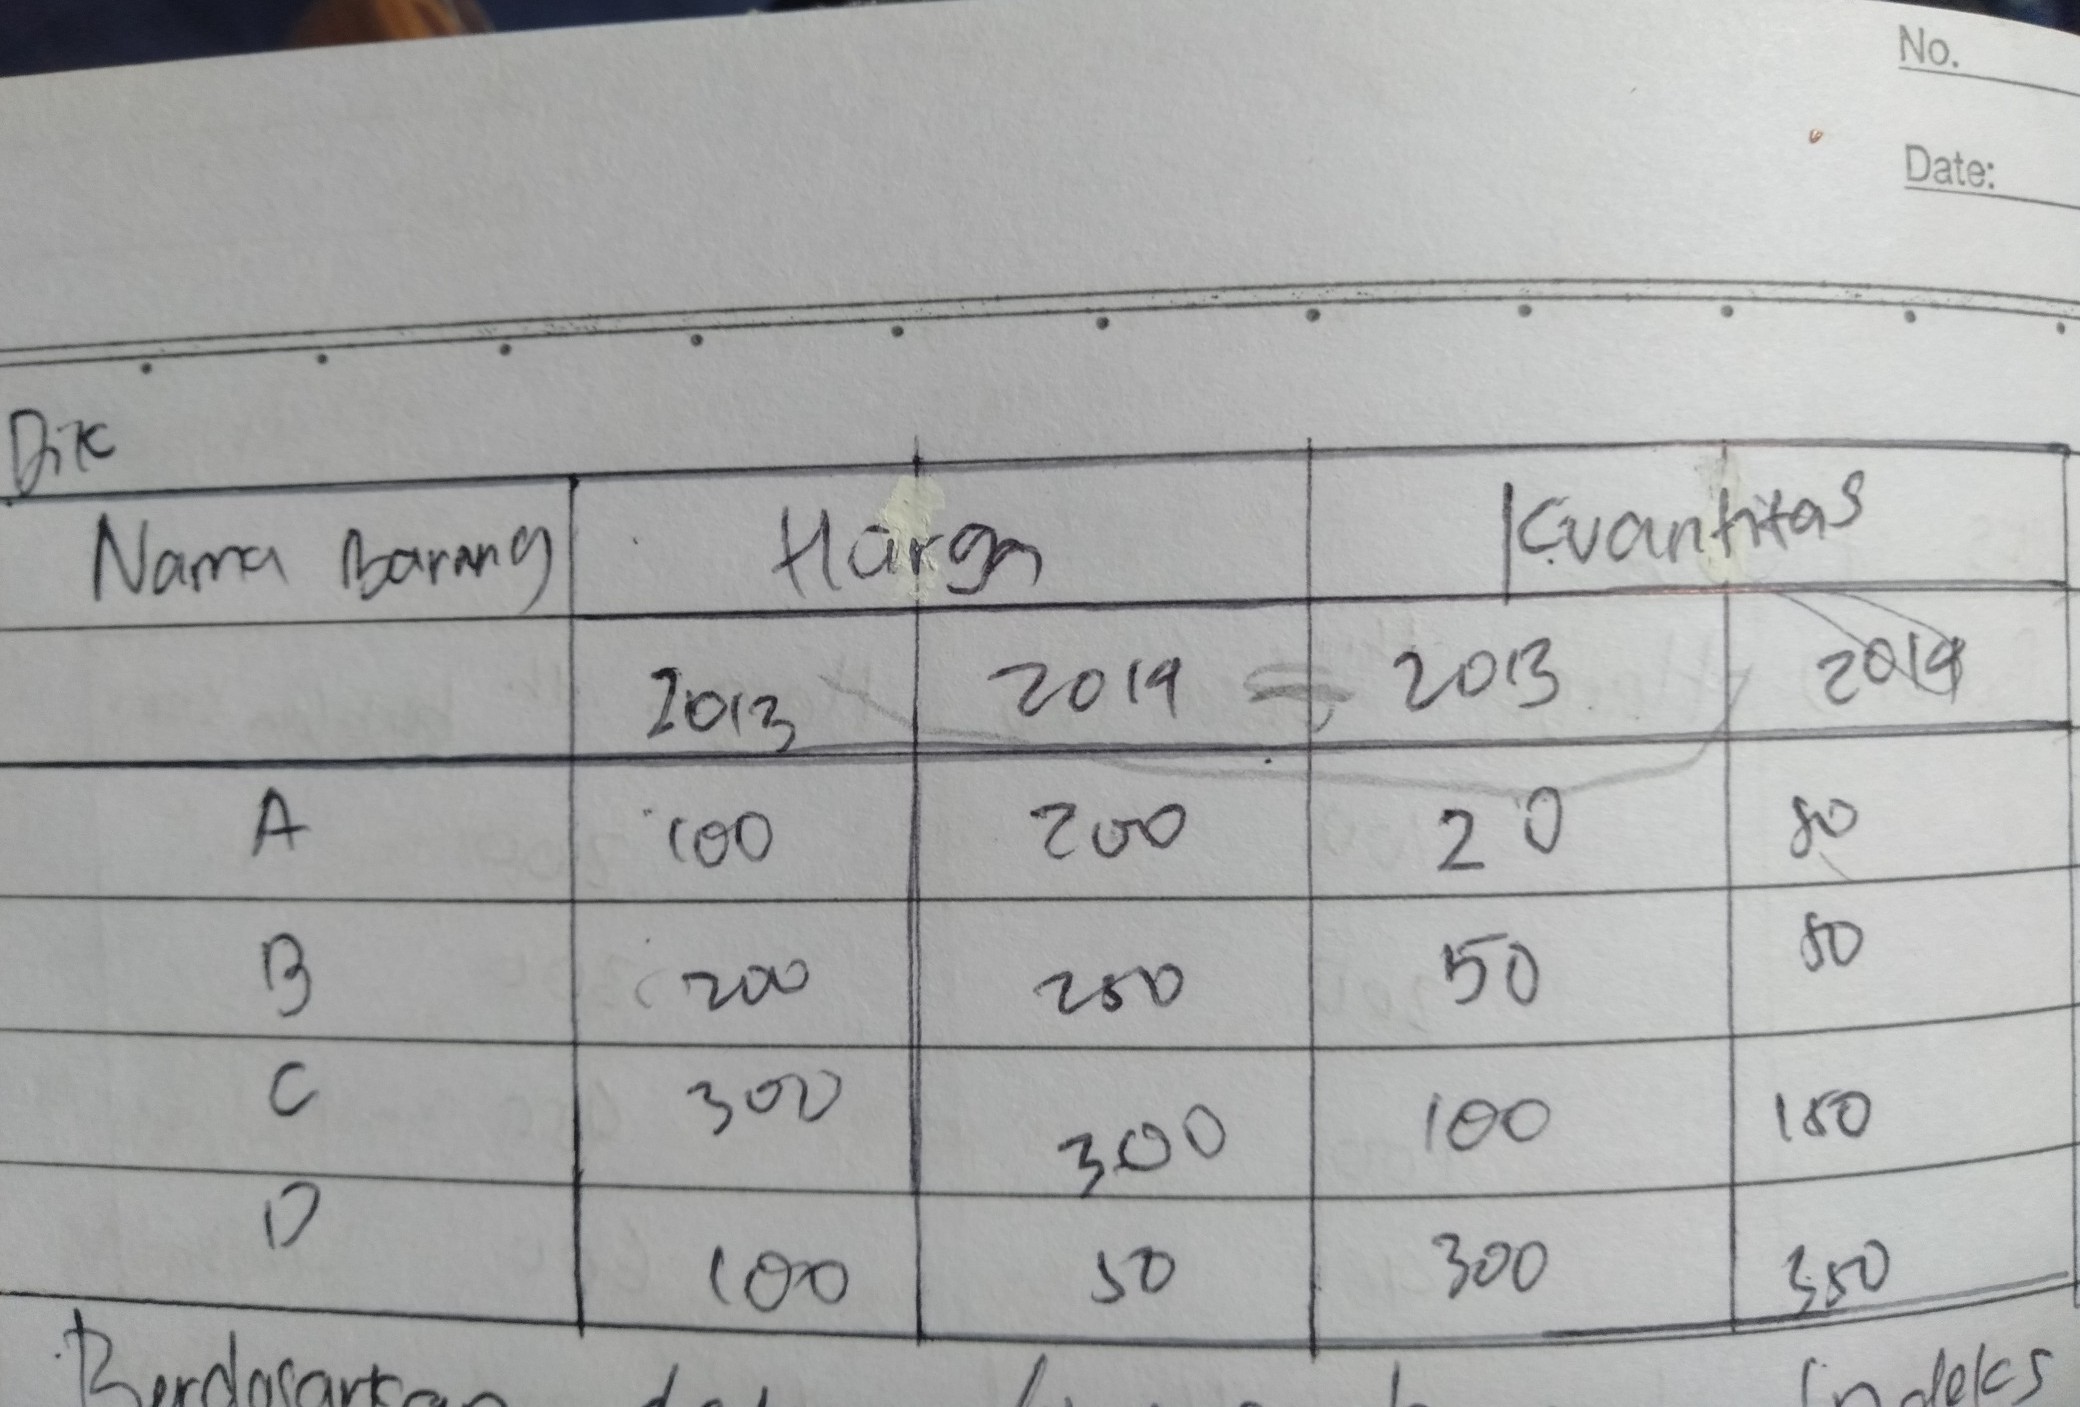 No.
Date:
Dik
Nama Barang Harga Kuantitas
2013 2019 2013 2019
A 100 200 20 80
B 200 250 50 80
C 300 300 100 150
D 100 50 300 350
Berdasarkan indeks